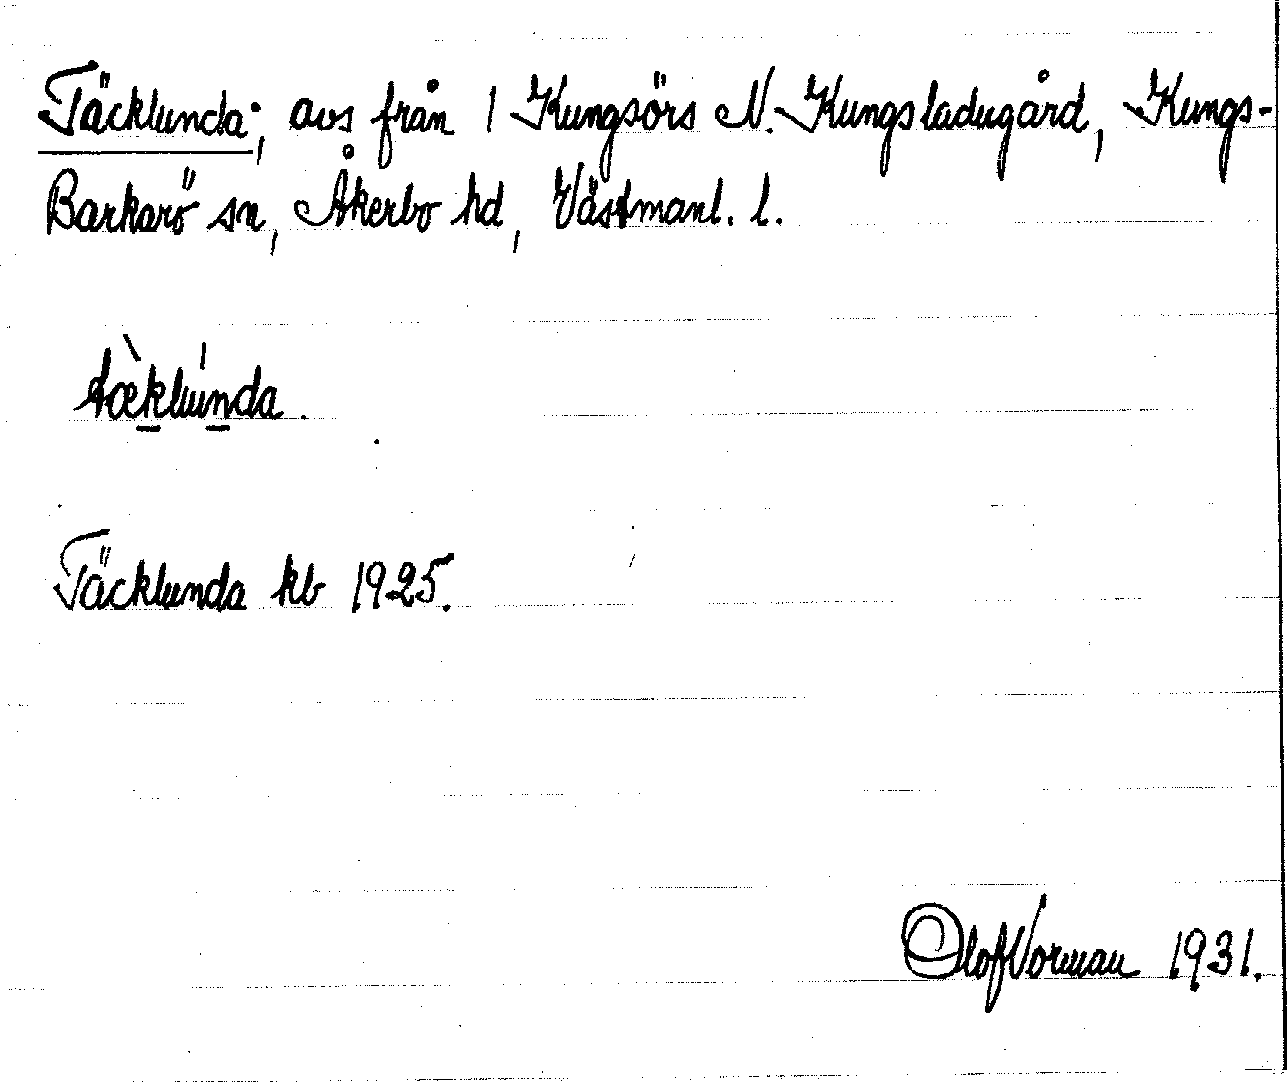 Täcklunda; avs från 1 Kungsörs N. Kungsladugård, Kungs-
Barkarö sn, Åkerbo hd, Västmanl. l.
tæ̀klúnda.
Täcklunda kb 1925.
Olof Vorman 1931.